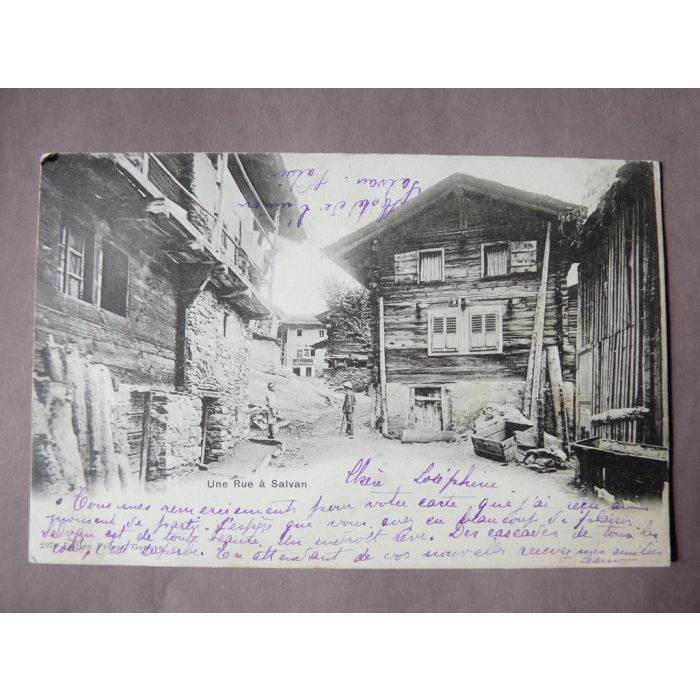 Salvan. Valais
Hôtel de l'union
Une Rue à Salvan
Chère Joséphine
Tous mes remerciements pour votre carte que j'ai reçu au
moment de partir. J'espère que vous avez eu beaucoup de plaisir
Salvan est de toute beauté. Un endroit rêvé. Des cascades de tous les
En attendant de vos nouvelles recevez mes amitiés